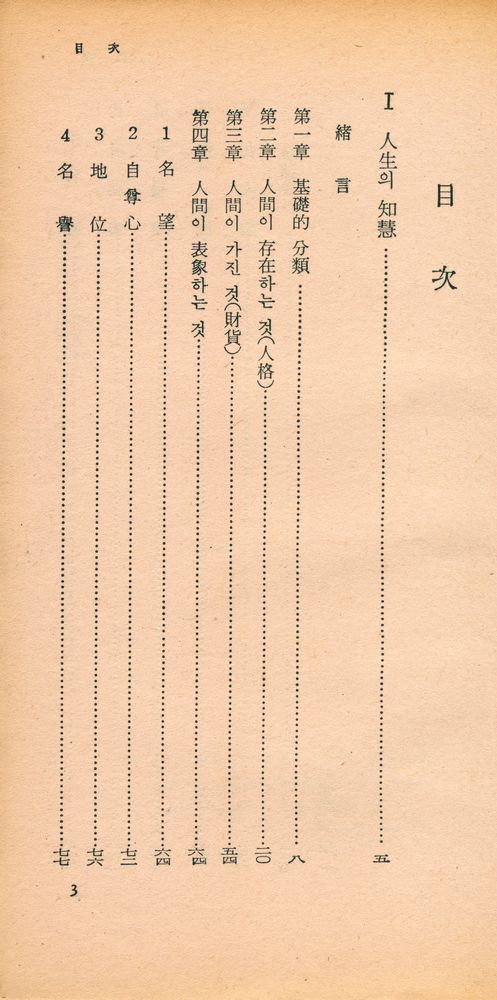 目次
目次
I 人生의 知慧……五
緒言
第一章 基礎的 分類……八
第二章 人間이 存在하는 것(人格)……二〇
第三章 人間이 가진 것(財貨)……五四
第四章 人間이 表象하는 것……六四
1 名望……六四
2 自尊心……七二
3 地位……七六
4 名譽……七七
3